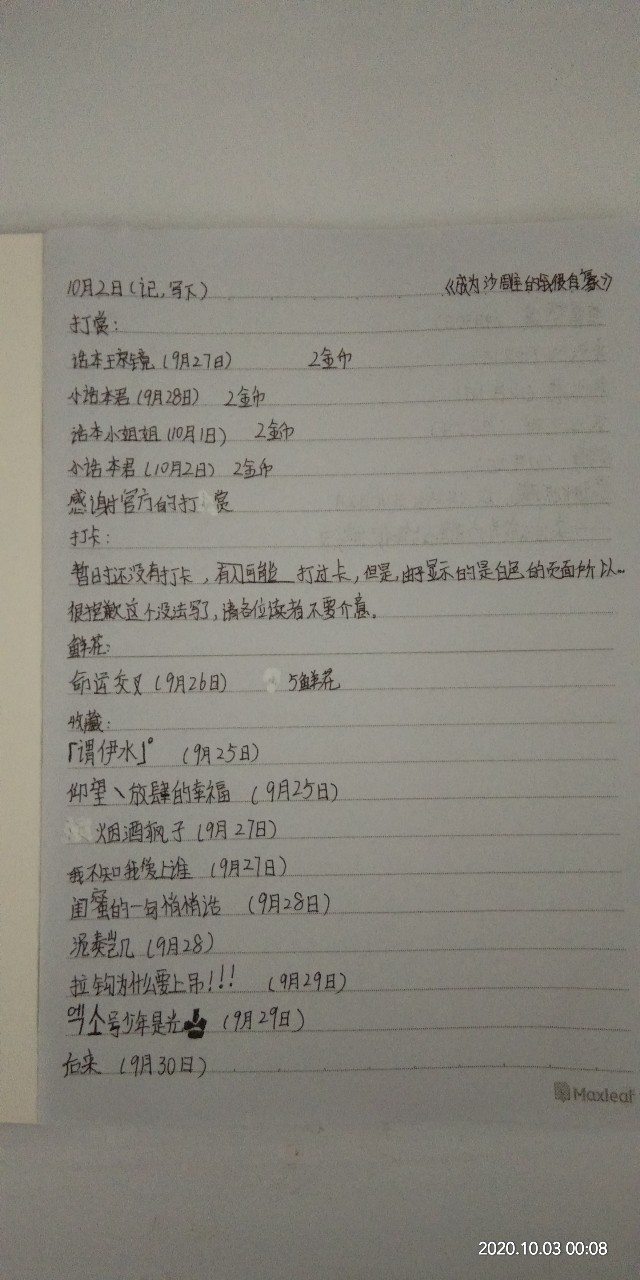 10月2日(记,写下) 《成为沙雕的我很自豪》
打赏:
话本琼镜(9月27日) 2金币
小话本君(9月28日) 2金币
话本小姐姐(10月1日) 2金币
小话本君(10月2日) 2金币
感谢官方的打赏
打卡:
暂时还没有打卡,有可能 打过卡,但是,由于显示的是白色的页面所以...
很抱歉这个没法写了,请各位读者不要介意。
鲜花:
命运交叉(9月26日) 5鲜花
收藏:
「谓伊水」° (9月25日)
仰望丶放肆的幸福 (9月25日)
烟酒疯子(9月27日)
我不知我爱上谁 (9月27日)
闺蜜的一句悄悄话 (9月28日)
泥奏凯几(9月28)
拉钩为什么要上吊!!! (9月29日)
엑소号少年是光 (9月29日)
后来 (9月30日)
Maxleaf
2020.10.03 00:08